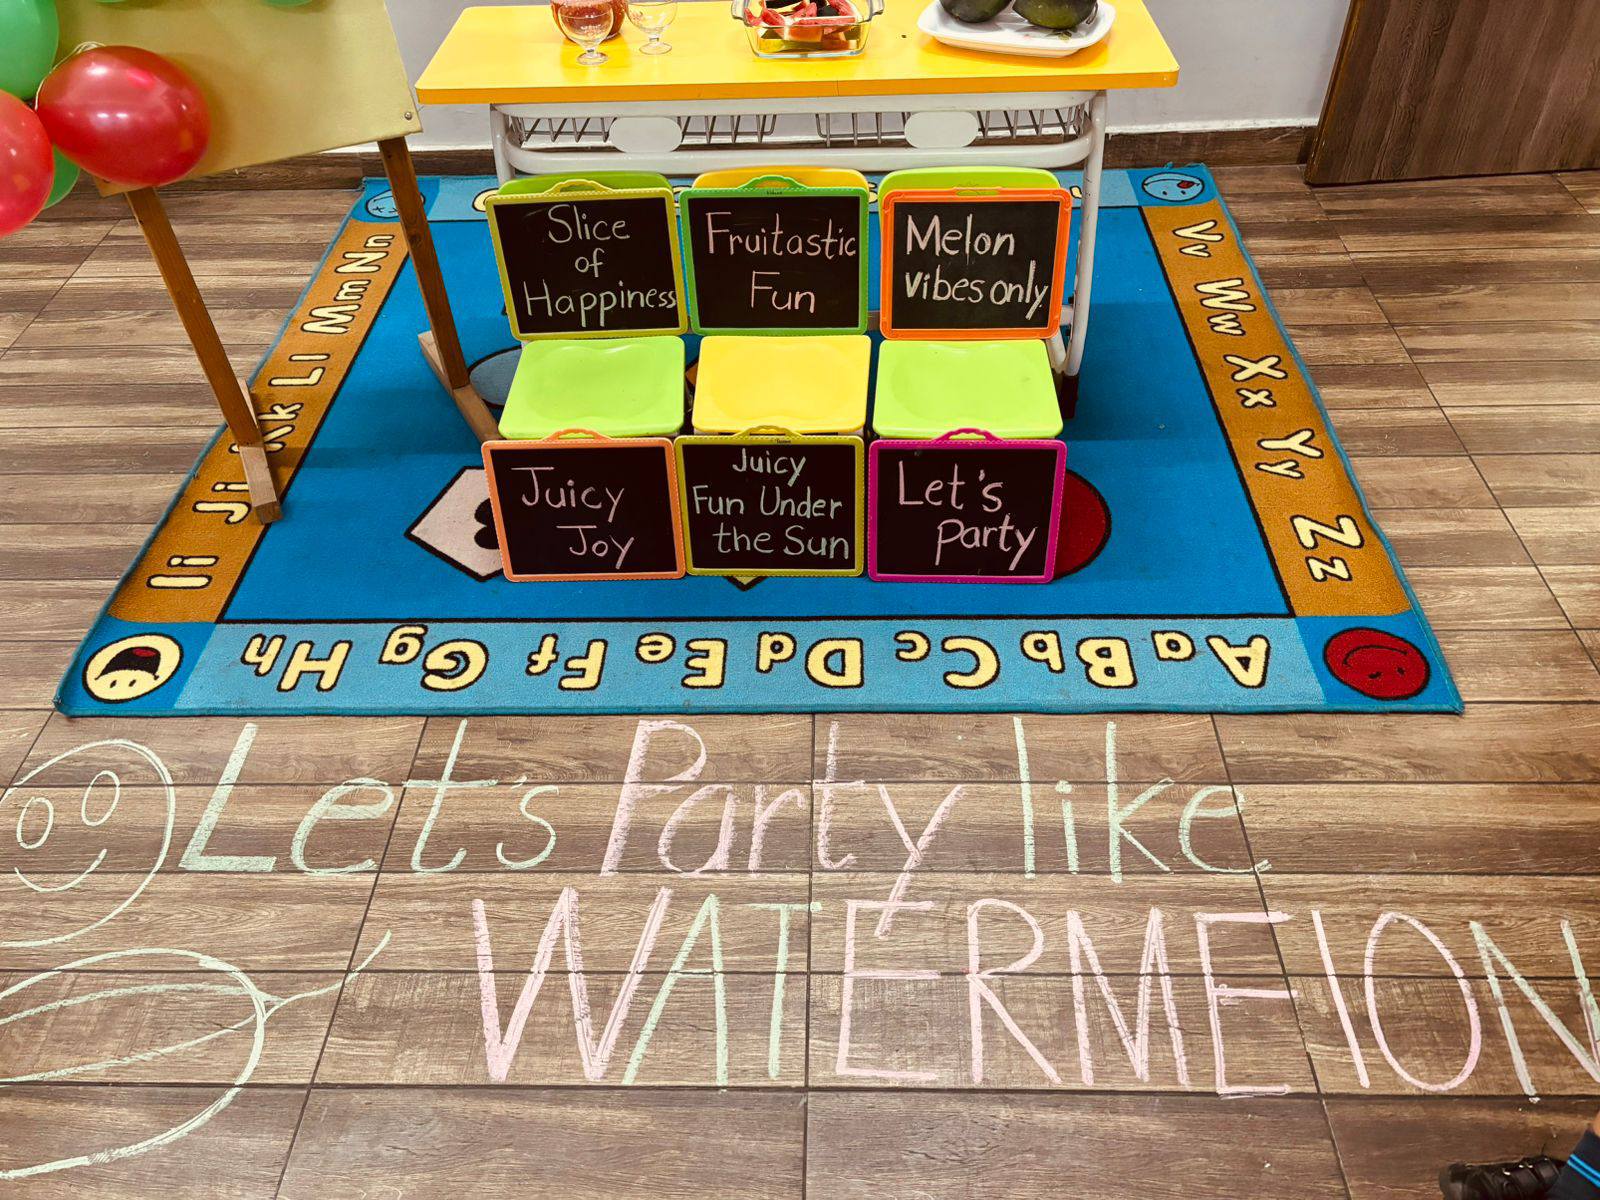 Slice
of
Happiness
Fruitastic
Fun
Melon
vibes only
Juicy
Joy
Juicy
Fun Under
the Sun
Let's
Party
Aa Bb Cc Dd Ee Ff Gg Hh
Ii Jj Kk Ll Mm Nn
Vv Ww Xx Yy Zz
Let's Party like
WATERMEION